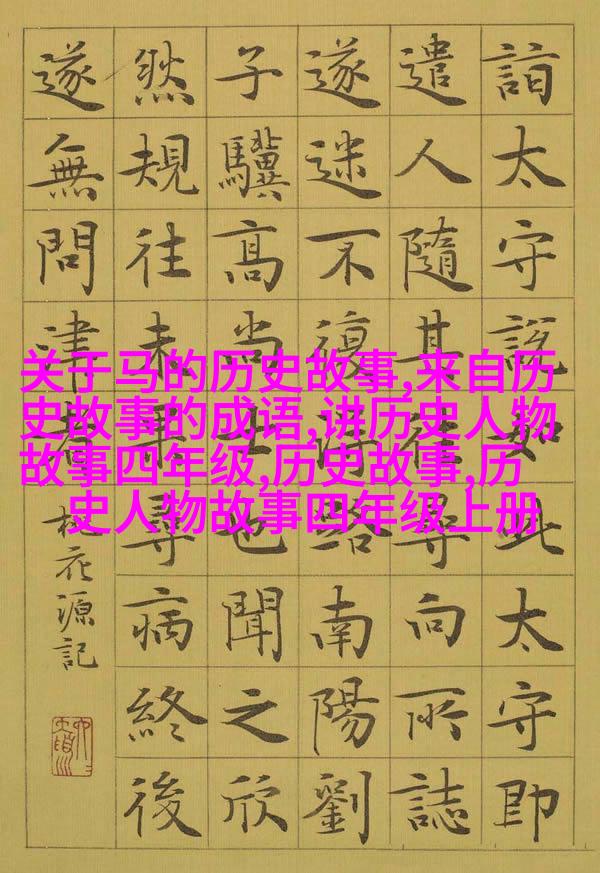 詣太守說如此太守即
遣人隨其往尋向所誌
遂迷不復得路南陽劉
子驥髙尚士也聞之欣
然規往未果尋病終後
遂無問津者
桃花源記
关于马的历史故事,来自历
史故事的成语,讲历史人物
故事四年级,历史故事,历
史人物故事四年级上册